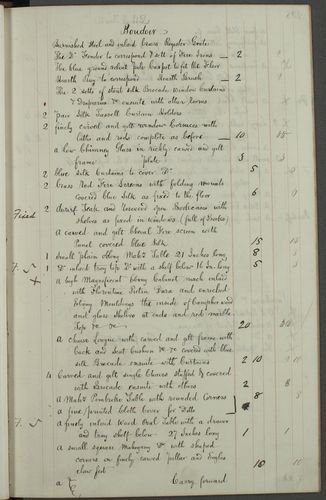 Boudoir
Burnished Steel and inlaid brass Register Grate
The Do Fender to correspond & sett of Fire Irons 2
The blue ground velvet pile Carpet to fit the Floor
Hearth Rug to correspond Hearth Brush 2
The 2 setts of stout silk Brocade window Curtains
& Draperies &c ensuite with other rooms
2 Pair Silk Tassell Curtain Holders
2 finely carved and gilt window Cornices with
laths and rods complete as before 10
a low Chimney Glass in richly carved and gilt
frame plate 3 3
2 blue Silk Curtains to cover Do 5
2 Brass Rod Fire Screens with folding
Covered blue Silk as fixed to the floor 6 0
2 dwarf Bookcases with
Fixed shelves as fixed in windows (full of Books)
a carved and gilt Cheval Fire screen with
Panel covered blue Silk 15 15
1 small plain ebony Table 21 Inches long 8
Do with a shelf below 16 In. long 5
a high Magnificent Ebony Cabinet much enriched
with Florentine Pietra Dura and enriched
Ebony Mouldings the inside of Camphor wood
and glass shelves at ends and red marble
top &c &c 20
a chaise Longue with carved and gilt frame with
back and seat cushion &c &c covered with blue
silk Brocade ensuite with Curtains 2 10
4 Carved and gilt single Chairs stuffed & covered
with Brocade ensuite with others 2 8
a Pembroke Table with rounded Corners 8 8
a fine printed cloth Cover for Ditto
a finely inlaid Wood Oval Table with a drawer
and tray shelf below 27 Inches long 1 1
a small square Mahogany Do with shaped
corners on finely carved pillar and Eagles
claw feet 10 10
Carry forward